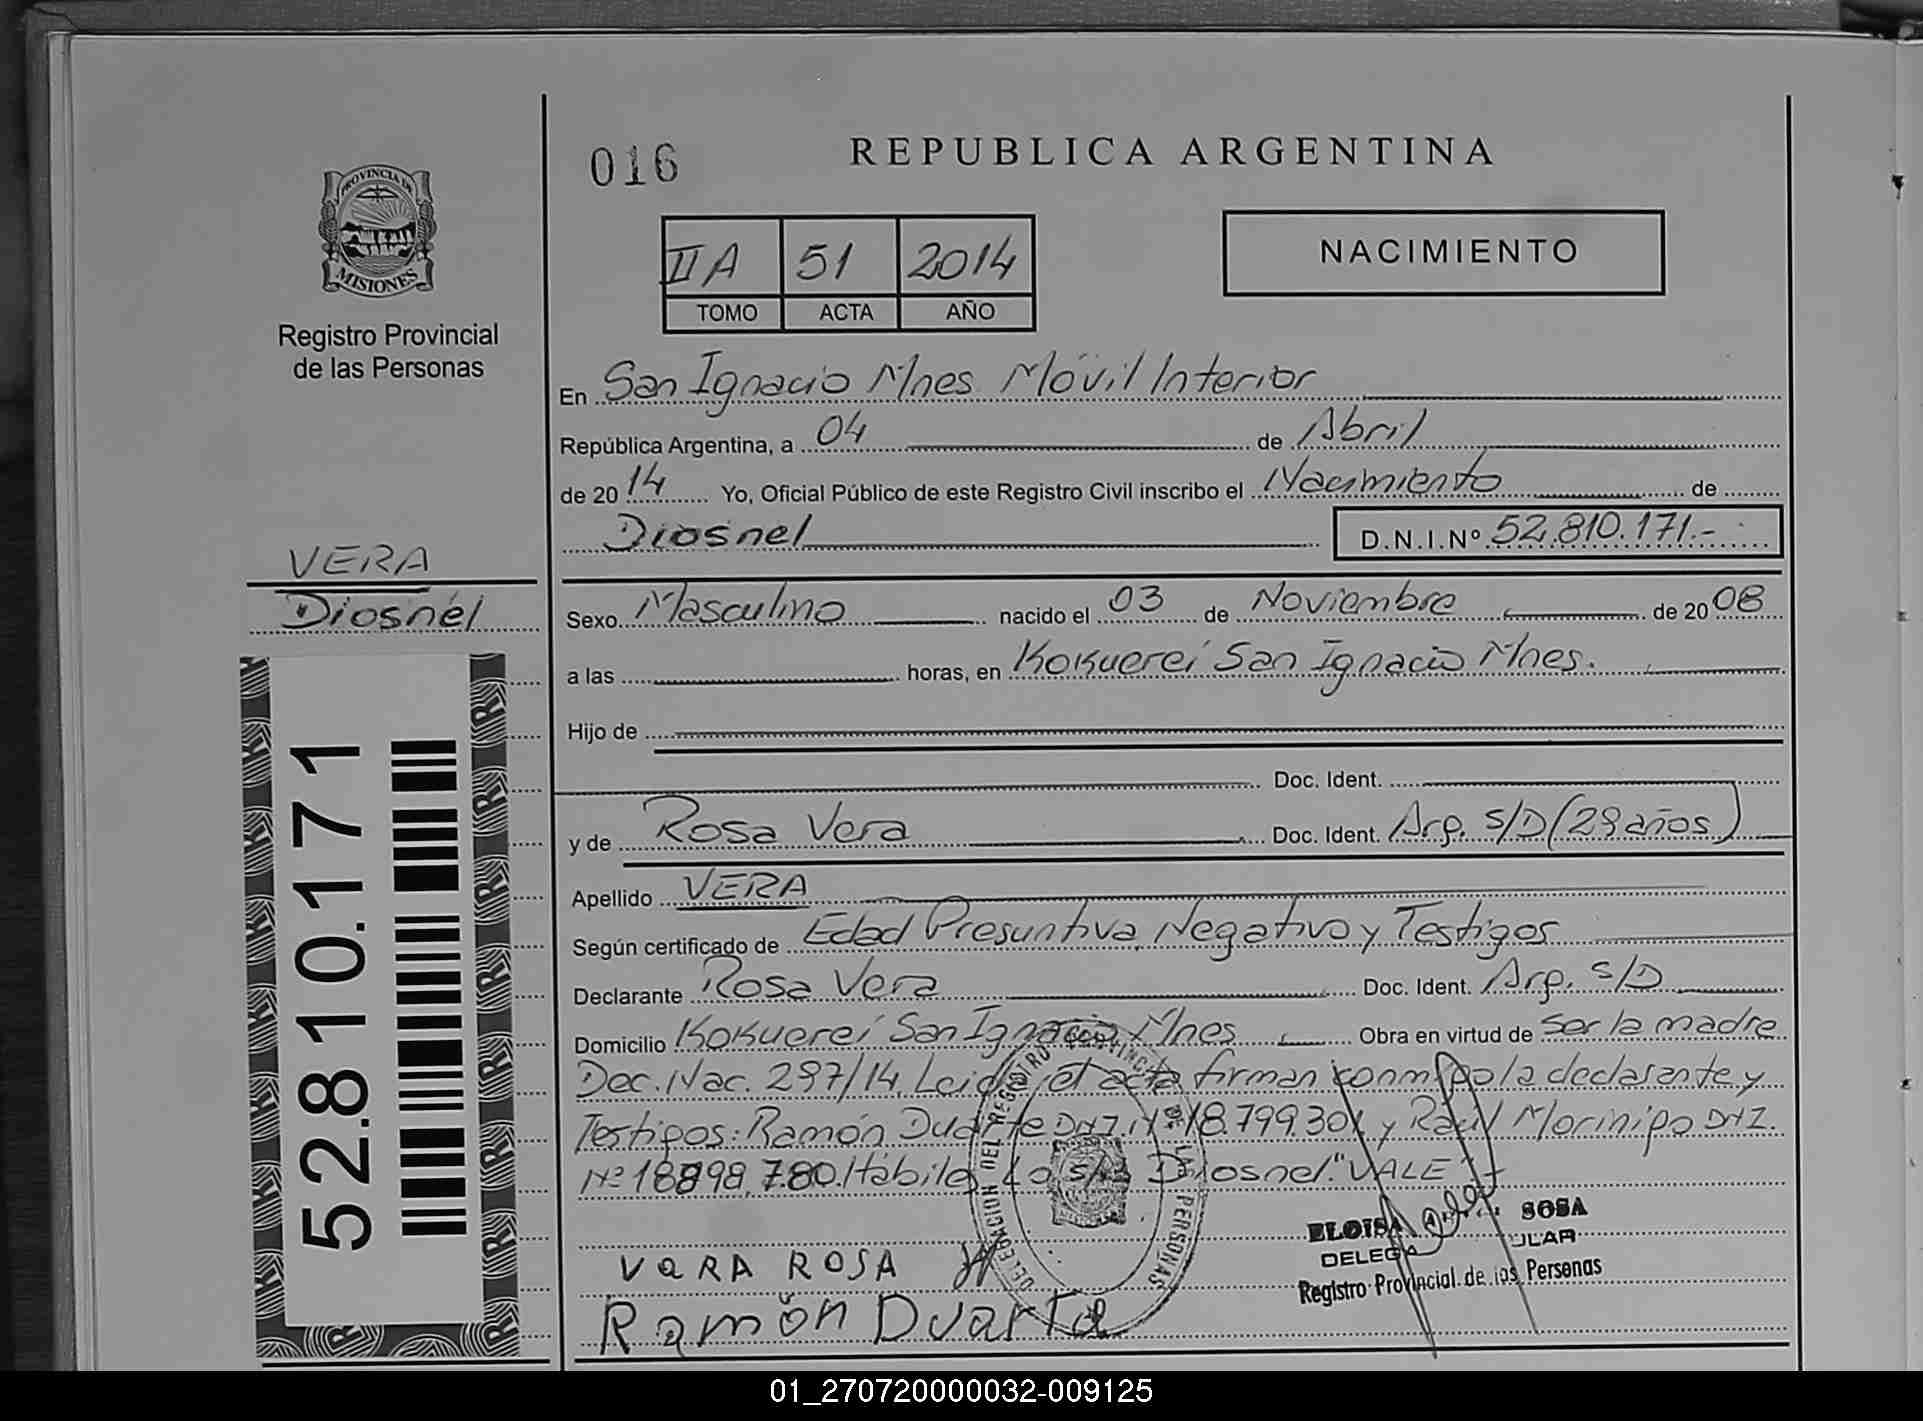 016
REPUBLICA ARGENTINA
PROVINCIA DE
MISIONES
Registro Provincial
de las Personas
II A 51 2014
TOMO ACTA AÑO
NACIMIENTO
En San Ignacio Mnes Móvil Interior
República Argentina, a 04 de Abril
de 20 14 Yo, Oficial Público de este Registro Civil inscribo el Nacimiento de
Diosnel D.N.I.Nº 52.810.171.-
VERA
Diosnel
52.810.171
Sexo Masculino nacido el 03 de Noviembre de 20 08
a las horas, en Kokuereí San Ignacio Mnes.
Hijo de
Doc. Ident.
y de Rosa Vera Doc. Ident. Arg. S/D (29 años)
Apellido VERA
Según certificado de Edad Presuntiva, Negativo y Testigos
Declarante Rosa Vera Doc. Ident. Arg. S/D
Domicilio Kokuereí San Ignacio Mnes Obra en virtud de ser la madre
Dec. Nac. 297/14. Leida el acta firman conmigo la declarante y
Testigos: Ramón Duarte DNI. Nº 18.799.301 y Raúl Morinigo DNI.
Nº 18898.780. Hábiles Lo s/r Diosnel. "VALE"
DELEGACION DEL REGISTRO PROVINCIAL DE LAS PERSONAS
ELOISA SOSA
DELEGA ULAR
Registro Provincial de las Personas
VeRA ROSA
Ramón Duarte
01_270720000032-009125